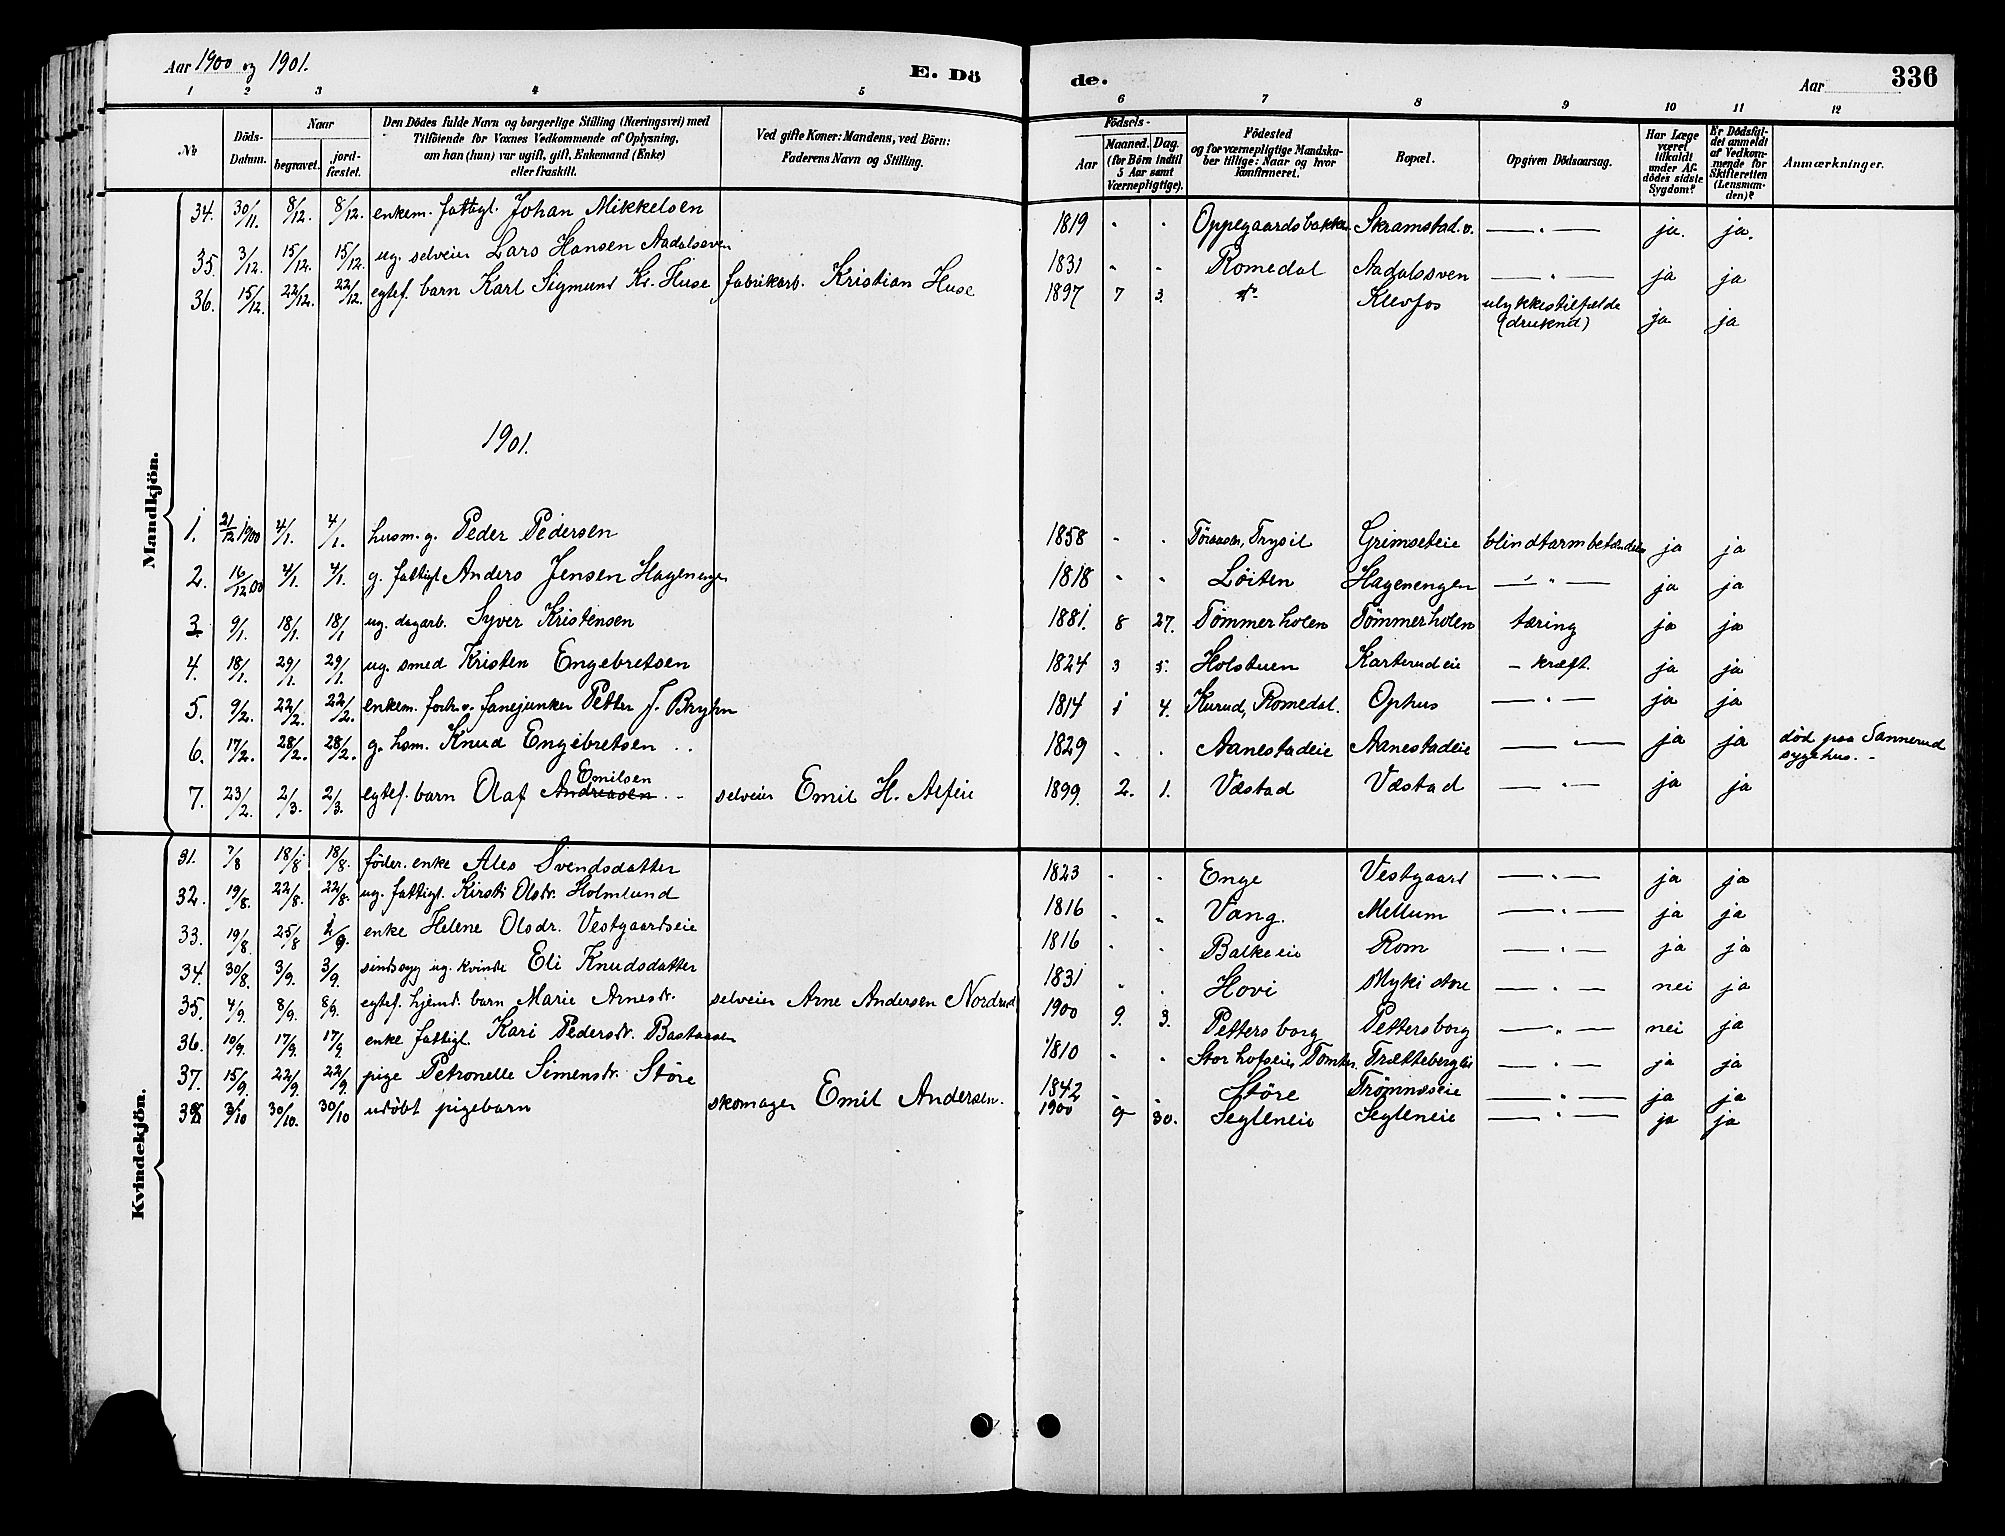 Aar 1900 og 1901. E. Dö de. Aar 336
1 2 3 4 5 6 7 8 9 10 11 12
№ Döds-Datum. Naar begravet. jordfæstet. Den Dödes fulde Navn og borgerlige Stilling (Næringsvei) med Tilföiende for Voxnes Vedkommende af Oplysning, om han (hun) var ugift, gift, Enkemand (Enke) eller fraskilt. Ved gifte Koner: Mandens, ved Börn: Faderens Navn og Stilling. Födsels- Aar Maaned. Dag. (for Börn indtil 5 Aar samt Værnepligtige). Födested og for værnepligtige Mandskaber tillige: Naar og hvor konfirmeret. Bopæl. Opgiven Dödsaarsag. Har Læge været tilkaldt under Afdödes sidste Sygdom? Er Dödsfaldet anmeldt af Vedkommende for Skifteretten (Lensmanden)? Anmærkninger.
Mandkjön.
34. 30/11. 8/12. 8/12. enkem. fattigl. Johan Mikkelsen 1819 " " Oppegaardsbakken Skramstad.v. — " — ja. ja.
35. 3/12. 15/12. 15/12. ug. selveier Lars Hansen Aadalssven 1831 " " Romedal Aadalssven — " — ja ja
36. 15/12. 22/12. 22/12. egtef. barn Karl Sigmund Kr. Huse fabrikarb. Kristian Huse 1897 7 3. Klevfos ulykkestilfælde (druknd) ja ja
1901.
1. 21/12 1900 4/1. 4/1. husm. g. Peder Pedersen 1858 " " Töraasen, Trysil Grimseteie blindtarmbetændelse ja ja
2. 16/12 00 4/1. 4/1. g. fattigl Anders Jensen Hagenengen 1818 " " Löiten Hagenengen — " — ja ja
3 9/1. 18/1. 18/1 ug. dagarb. Syver Kristensen 1881. 8 27. Tömmerholen Tömmerholen tæring ja ja
4. 18/1. 29/1. 29/1. ug. smed Kristen Engebretsen 1824 3 5. Holstuen Karterudeie - kræft ja ja
5. 9/2. 22/2. 22/2. enkem. forh.v. fanejunker Petter J. Bryhn 1814 1 4. Kurud, Romedal. Ophus — " — ja ja
6. 17/2. 28/2. 28/2. g. hsm. Knud Engebretsen 1829 " " Aanestadeie Aanestadeie — " — ja ja død paa Sannerud sygehus. -
7. 23/2. 2/3. 2/3. egtef. barn Olaf Andreasen Emilsen selveier Emil H. 1899. 2. 1. Væstad Væstad — " — ja ja
Kvindekjön.
31. 7/8 18/8 18/8. föder. enke Ales Svendsdatter 1823 " " Enge Vestgaard — " — ja ja
32. 19/8. 22/8. 22/8. ug. fattigl. Kirsti Olsdr. Holmlund 1816 " " Vang. Mellum — " — ja ja
33. 19/8. 25/8 2/9. enke Helene Olsdr. Vestgaardseie 1816 " " Balkeeie Rom — " — ja ja
34. 30/8. 3/9. 3/9. sindssyg ug. kvinde Eli Knudsdatter 1831 " " Hovi Myki store — " — nei ja
35. 4/9. 8/9. 8/9. egtef. hjemd. barn Marie Arnesdr. selveier Arne Andersen Nordrud 1900 9. 3. Pettersborg Pettersborg — " — nei ja
36. 10/9. 17/9. 17/9 enke fattigl. Kari Pedersdr. Bastaasen 1810 " " Stor hofseie, Tomter. Trættebergeie — " — ja ja
37. 15/9. 22/9. 22/9. pige Petronelle Simensdr. Störe 1842 " Störe Trömnæseie — " — ja ja
38 3/10 30/10. 30/10 udöbt pigebarn skomager Emil Andersen. 1900 9 30. Segleneie Segleneie — " — ja ja